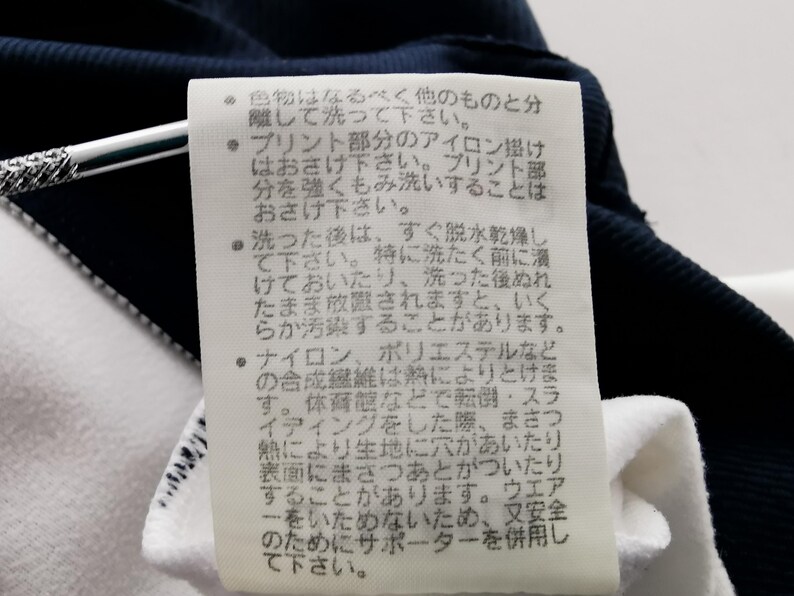 • 色物はなるべく他のものと分
離して洗って下さい。
• プリント部分のアイロン掛け
はおさけ下さい。プリント部
分を強くもみ洗いすることは
おさけ下さい。
• 洗った後は、すぐ脱水乾燥し
て下さい。特に洗たく前に漬
けておいたり、洗った後ぬれ
たまま放置されますと、いく
らか汚染することがあります。
• ナイロン、ポリエステルなど
の合成繊維は熱によりとけま
す。体育館などで転倒・スラ
イディングをした際、まさつ
熱により生地に穴があいたり
表面にまさつあとがついたり
することがあります。ウエア
ーをいためないため、又安全
のためにサポーターを併用し
て下さい。